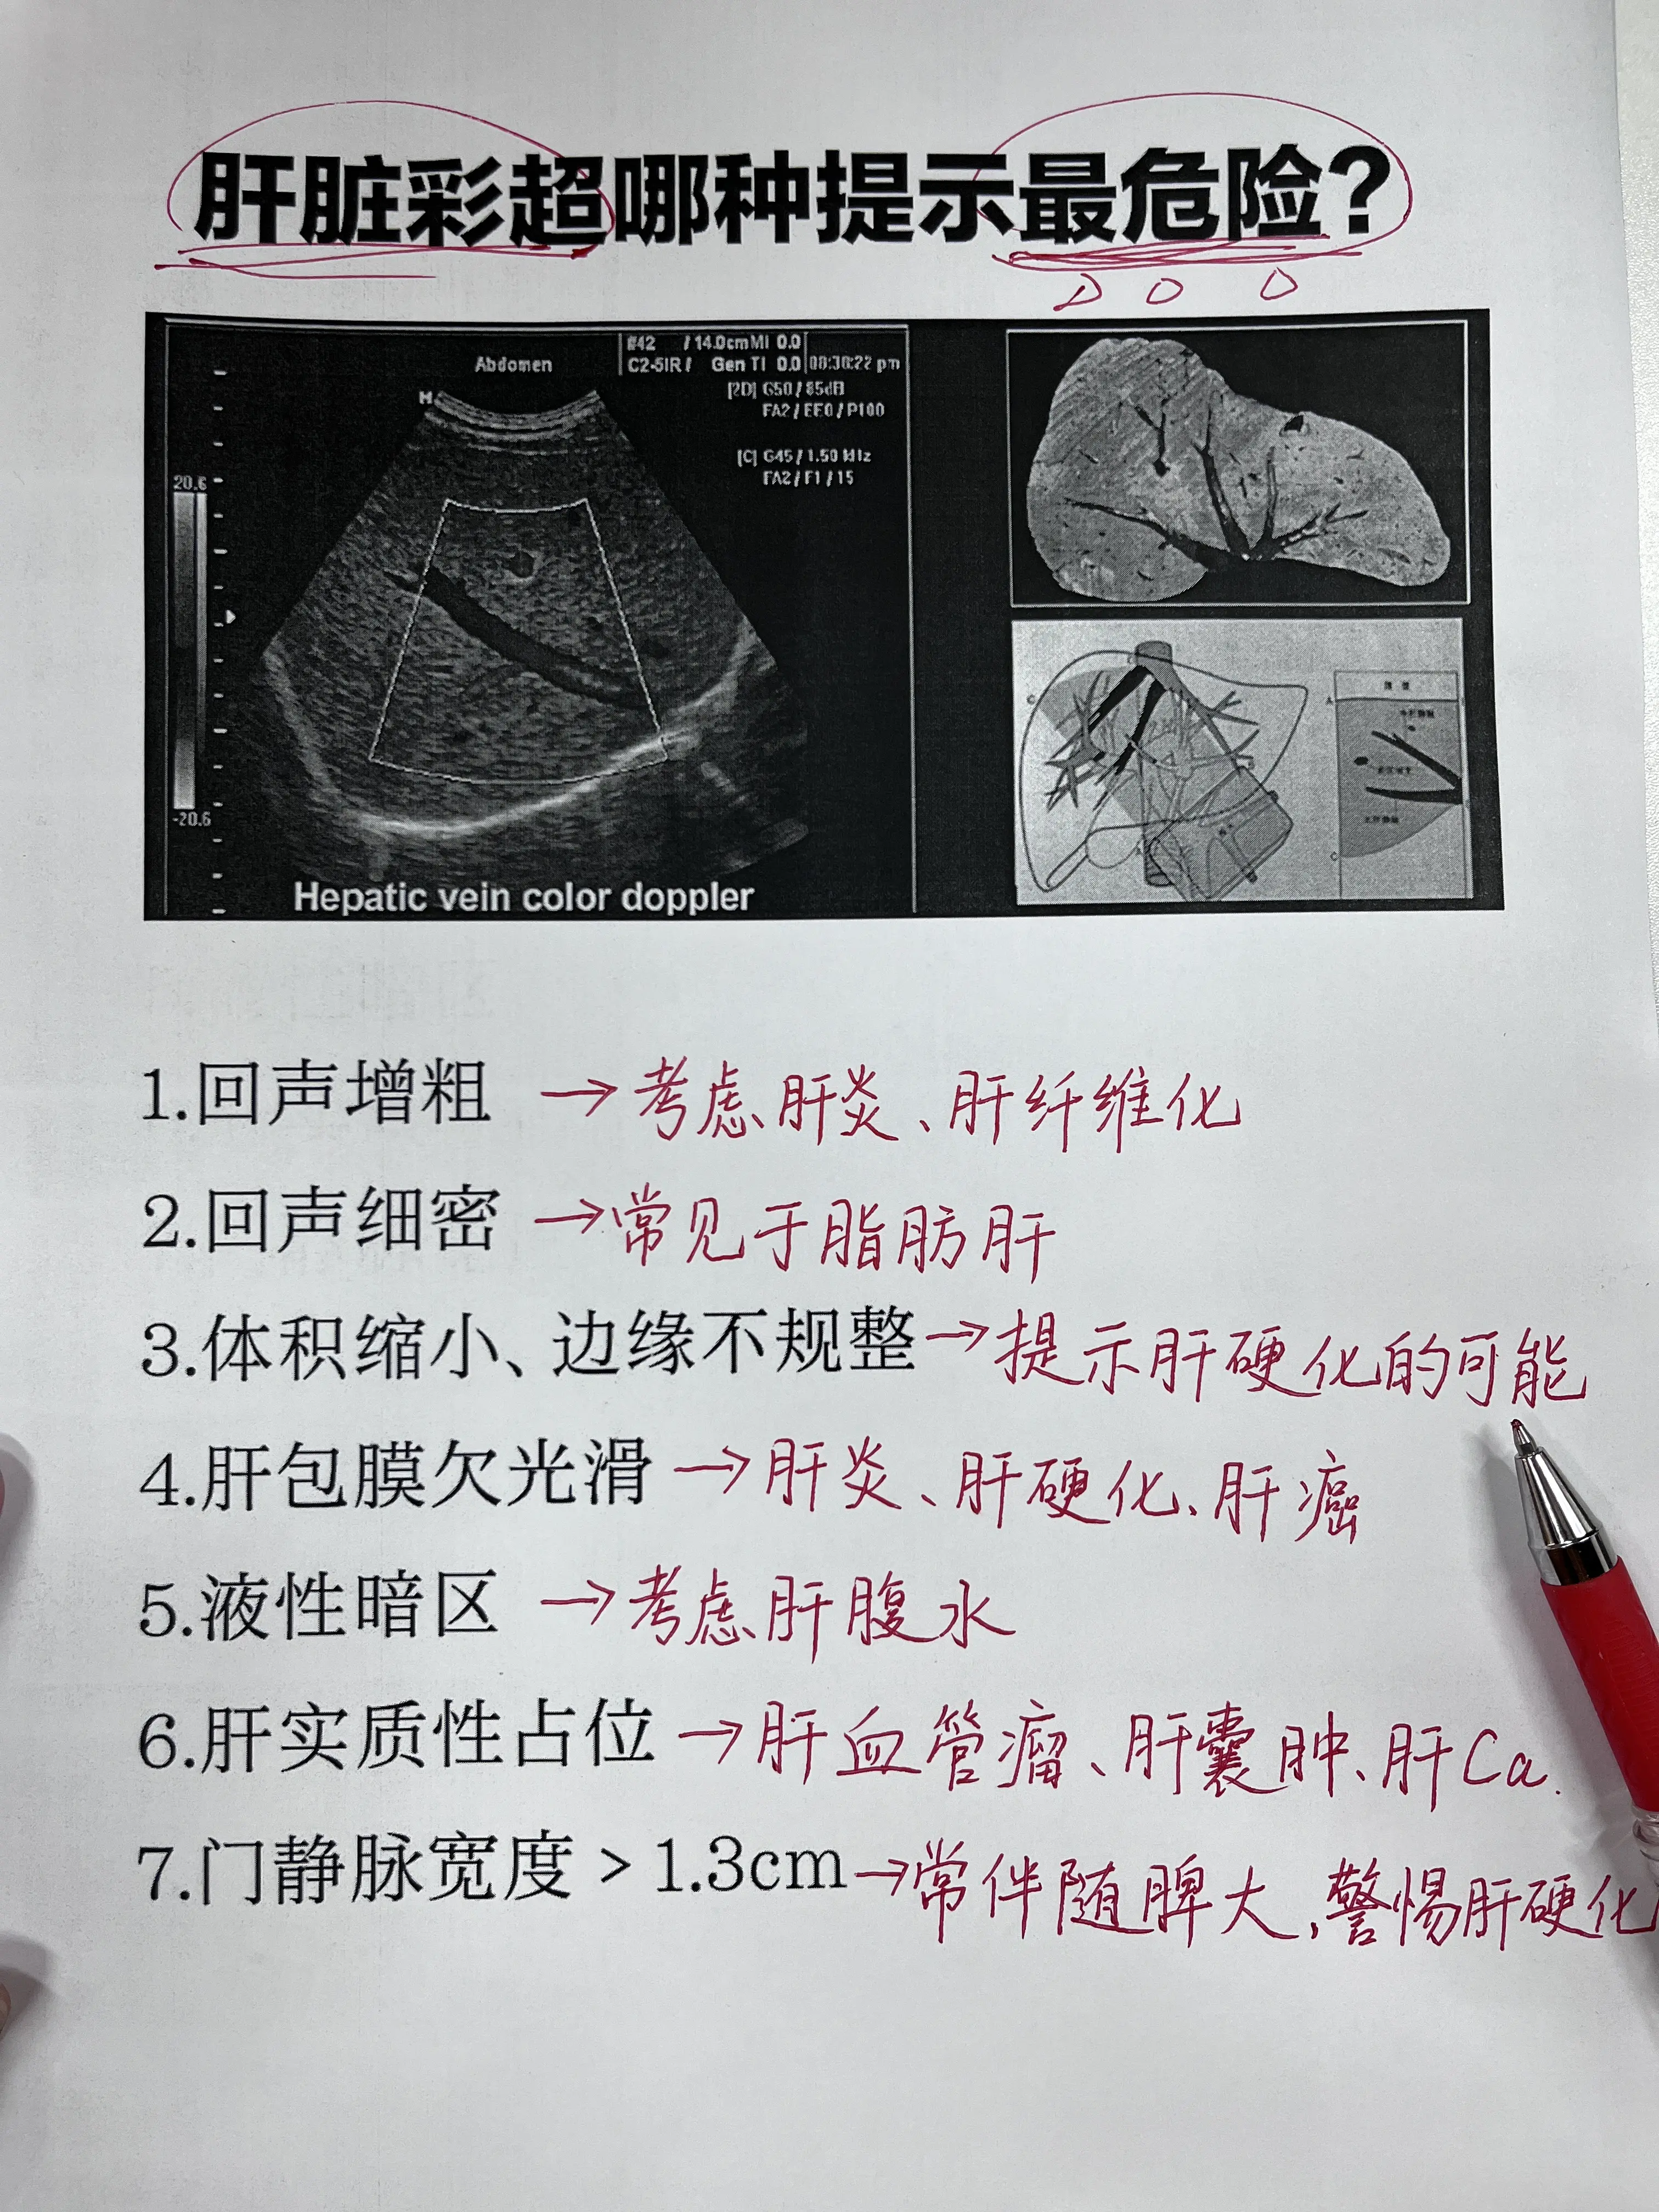 肝脏彩超哪种提示最危险?
#42 / 14.0cm MI 0.0
Abdomen
C2-5IR / Gen TI 0.0 08:30:22 pm
[2D] G50 / 85dB
FA2 / EE0 / P100
[C] G45 / 1.50 kHz
FA2 / F1 / 15
20.6
-20.6
Hepatic vein color doppler
1.回声增粗 →考虑肝炎、肝纤维化
2.回声细密 →常见于脂肪肝
3.体积缩小、边缘不规整→提示肝硬化的可能
4.肝包膜欠光滑 →肝炎、肝硬化、肝癌
5.液性暗区 →考虑肝腹水
6.肝实质性占位 →肝血管瘤、肝囊肿、肝Ca.
7.门静脉宽度>1.3cm→常伴随脾大,警惕肝硬化